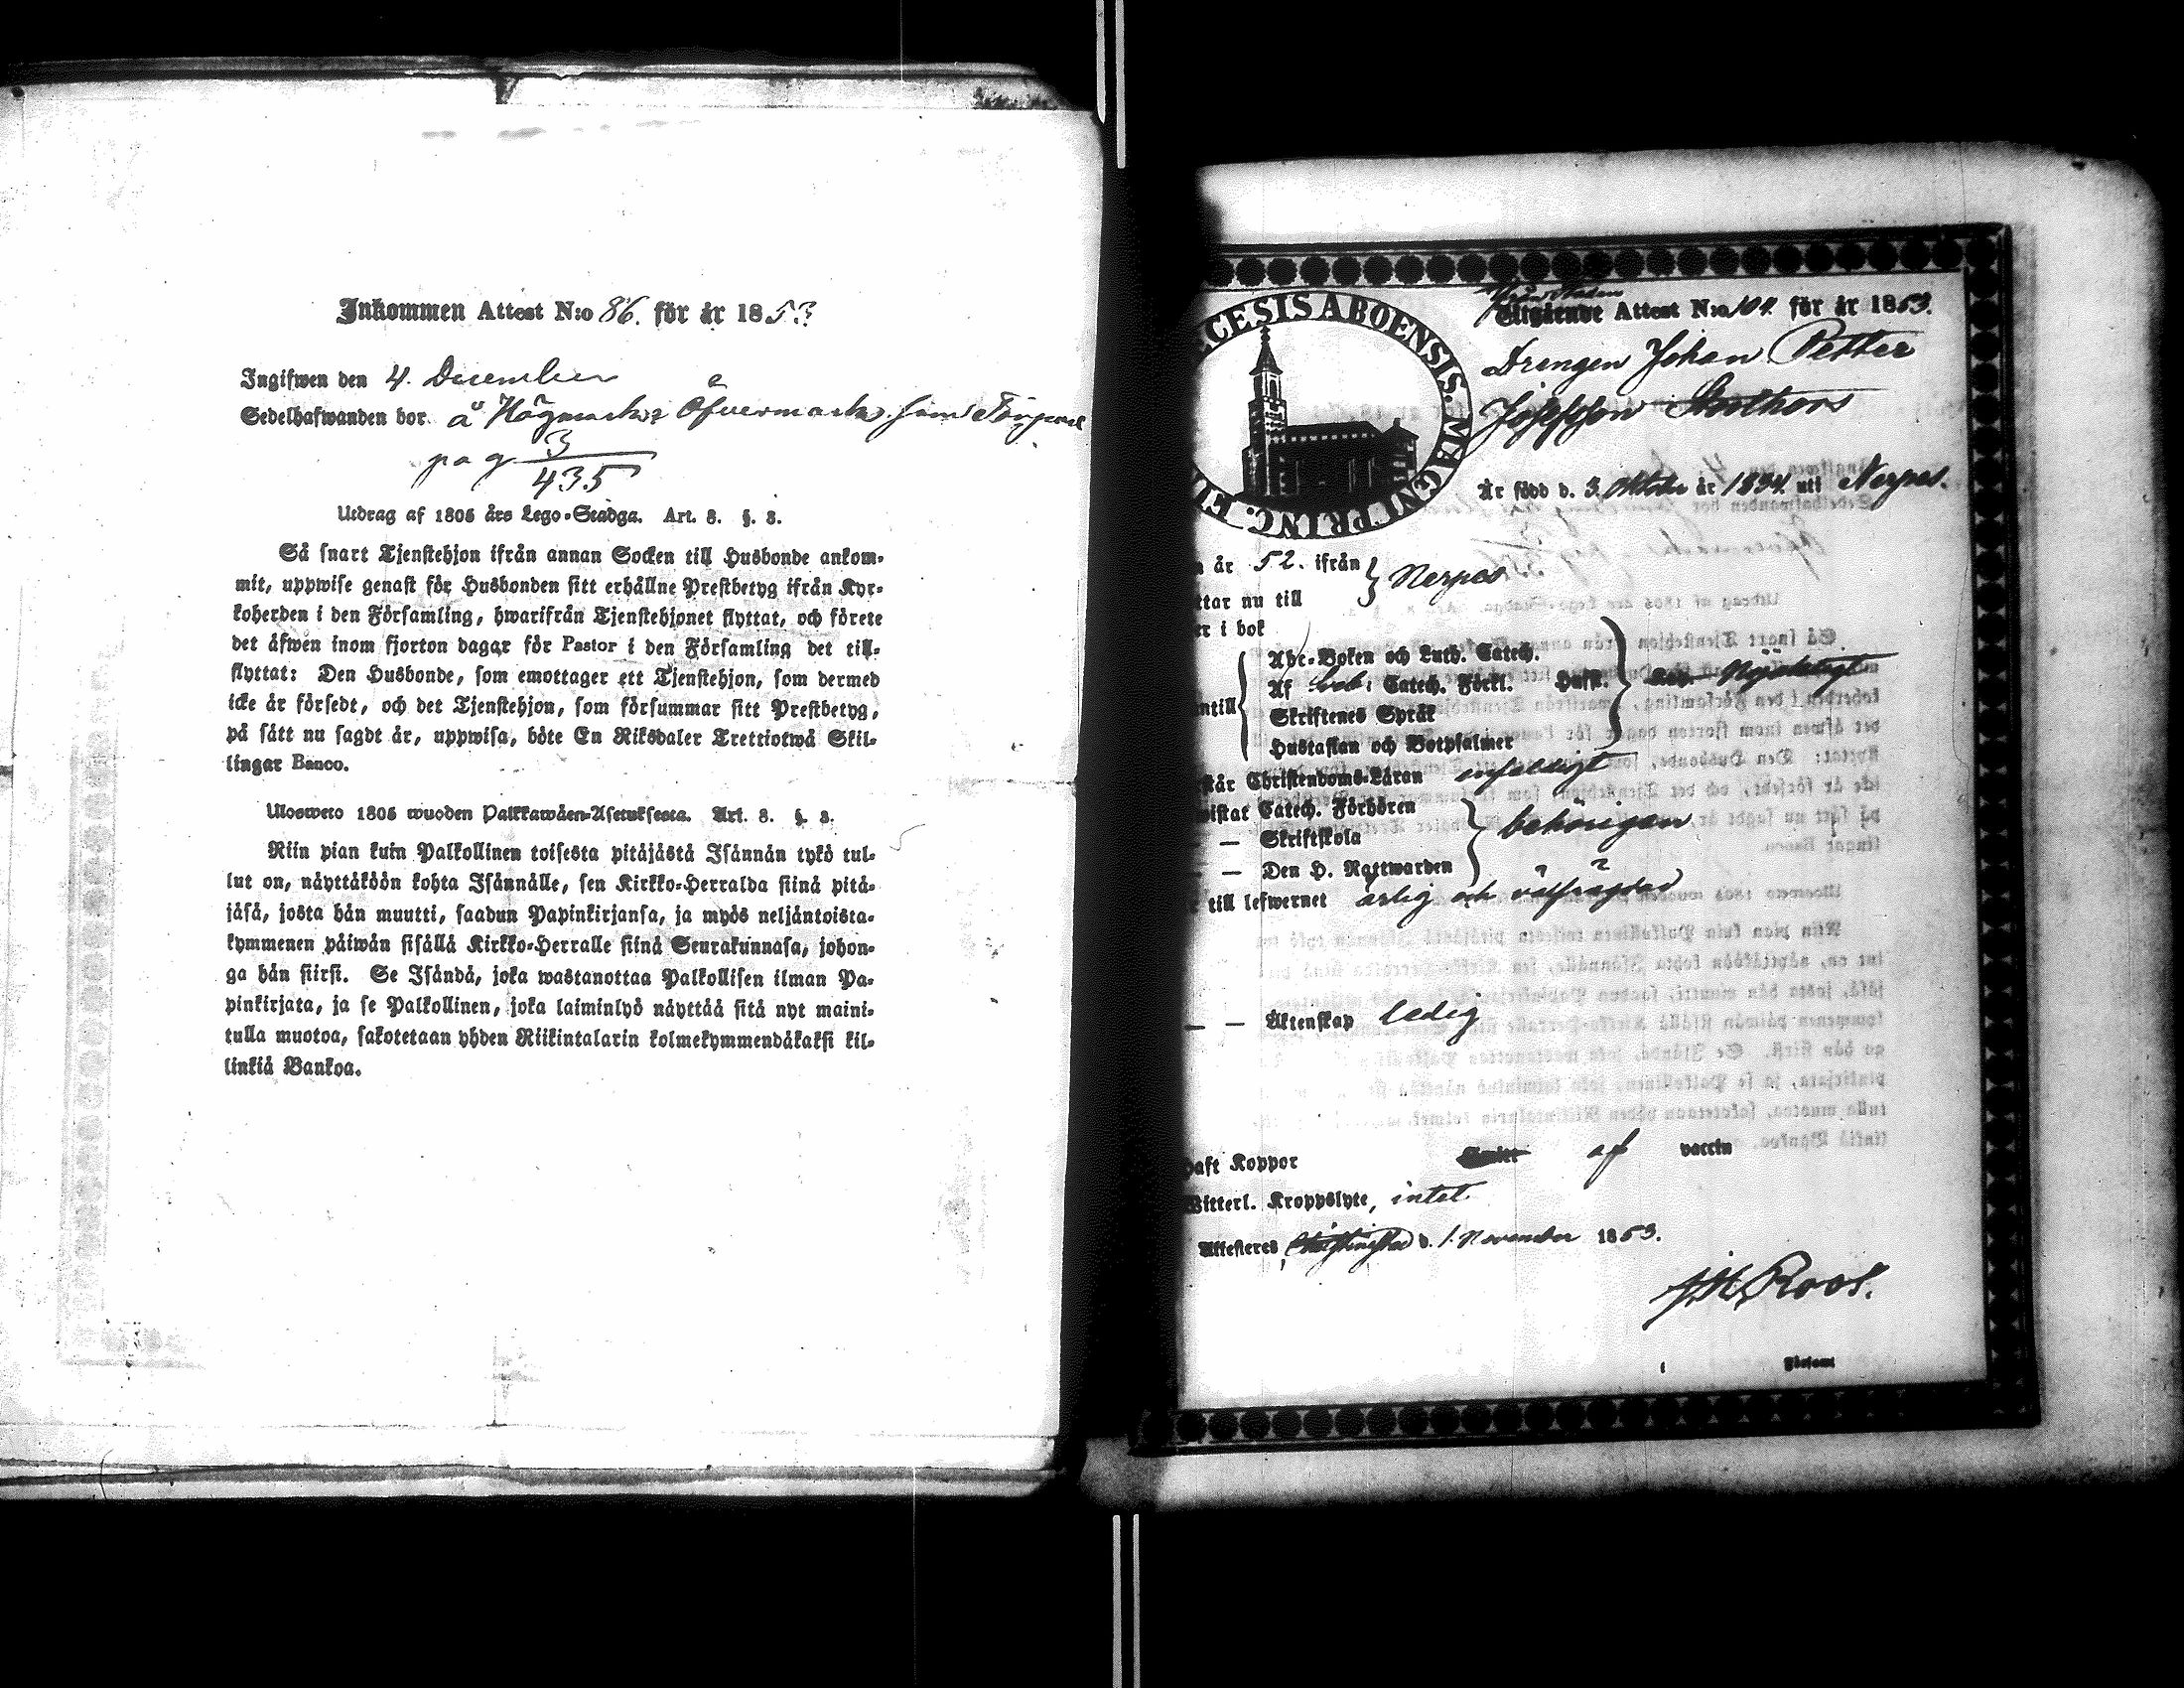 Inkommen Attest N:o 86. för år 1853
Ingifwen den 4. December
Sedelhafwanden bor å Högmarks Öfvermark som Torpare
pag 3
435
Utdrag af 1805 års Lego-Stadga. Art. 8. §. 3.
Så snart Tjenstehjon ifrån annan Socken till Husbonde ankom-
mit, uppwise genast för Husbonden sitt erhållne Prestbetyg ifrån Kyr-
koherden i den Församling, hwarifrån Tjenstehjonet flyttat, och förete
det äfwen inom fjorton dagar för Pastor i den Församling det till-
flyttat: Den Husbonde, som emottager ett Tjenstehjon, som dermed
icke är försedt, och det Tjenstehjon, som försummar sitt Prestbetyg,
på sätt nu sagdt är, uppwisa, böte En Riksdaler Tretriotwå Skil-
lingar Banco.
Ulosweto 1805 wuoden Palkkawäen-Asetuksesta. Art. 8. §. 3.
Niin pian kuin Palkollinen toisesta pitäjästä Isännän tykö tul-
lut on, näyttäköön kohta Isännälle, sen Kirkko-Herralda siinä pitä-
jäsä, josta hän muutti, saadun Papinkirjansa, ja myös neljäntoista-
kymmenen päiwän sisällä Kirkko-Herralle siinä Seurakunnasa, johon-
ga hän siirsi. Se Isändä, joka wastanottaa Palkollisen ilman Pa-
pinkirjata, ja se Palkollinen, joka laiminlyö näyttää sitä nyt maini-
tulla muotoa, sakotetaan yhden Riikintalarin kolmekymmendäkaksi kil-
linkiä Bankoa.
Utgående Attest N:o 104. för år 1853.
CESIS ABOENSIS. MAGNI PRINC.
Drengen Johan Petter
Josefsson
Är född d. 3. Oktober år 1834. uti Nerpes.
år 52. ifrån
Nerpes
ttar nu till
er i bok
Abc-Boken och Luth. Catech.
Af Catech. Förkl. Husf.
ntill
Skriftenes Språk
Hustaflan och Botpsalmer
står Christendoms-Läran enfaldigt
wistat Catech. Förhören
— Skriftskola behörigen
— Den H. Nattwarden
till lefwernet ärlig och välfrägdad
— — Äktenskap ledig
haft Koppor af vaccin
Witterl. Kroppslyte, intet
Attesteres Christinestad d. 1. November 1853.
J. M. Roos.
Församl